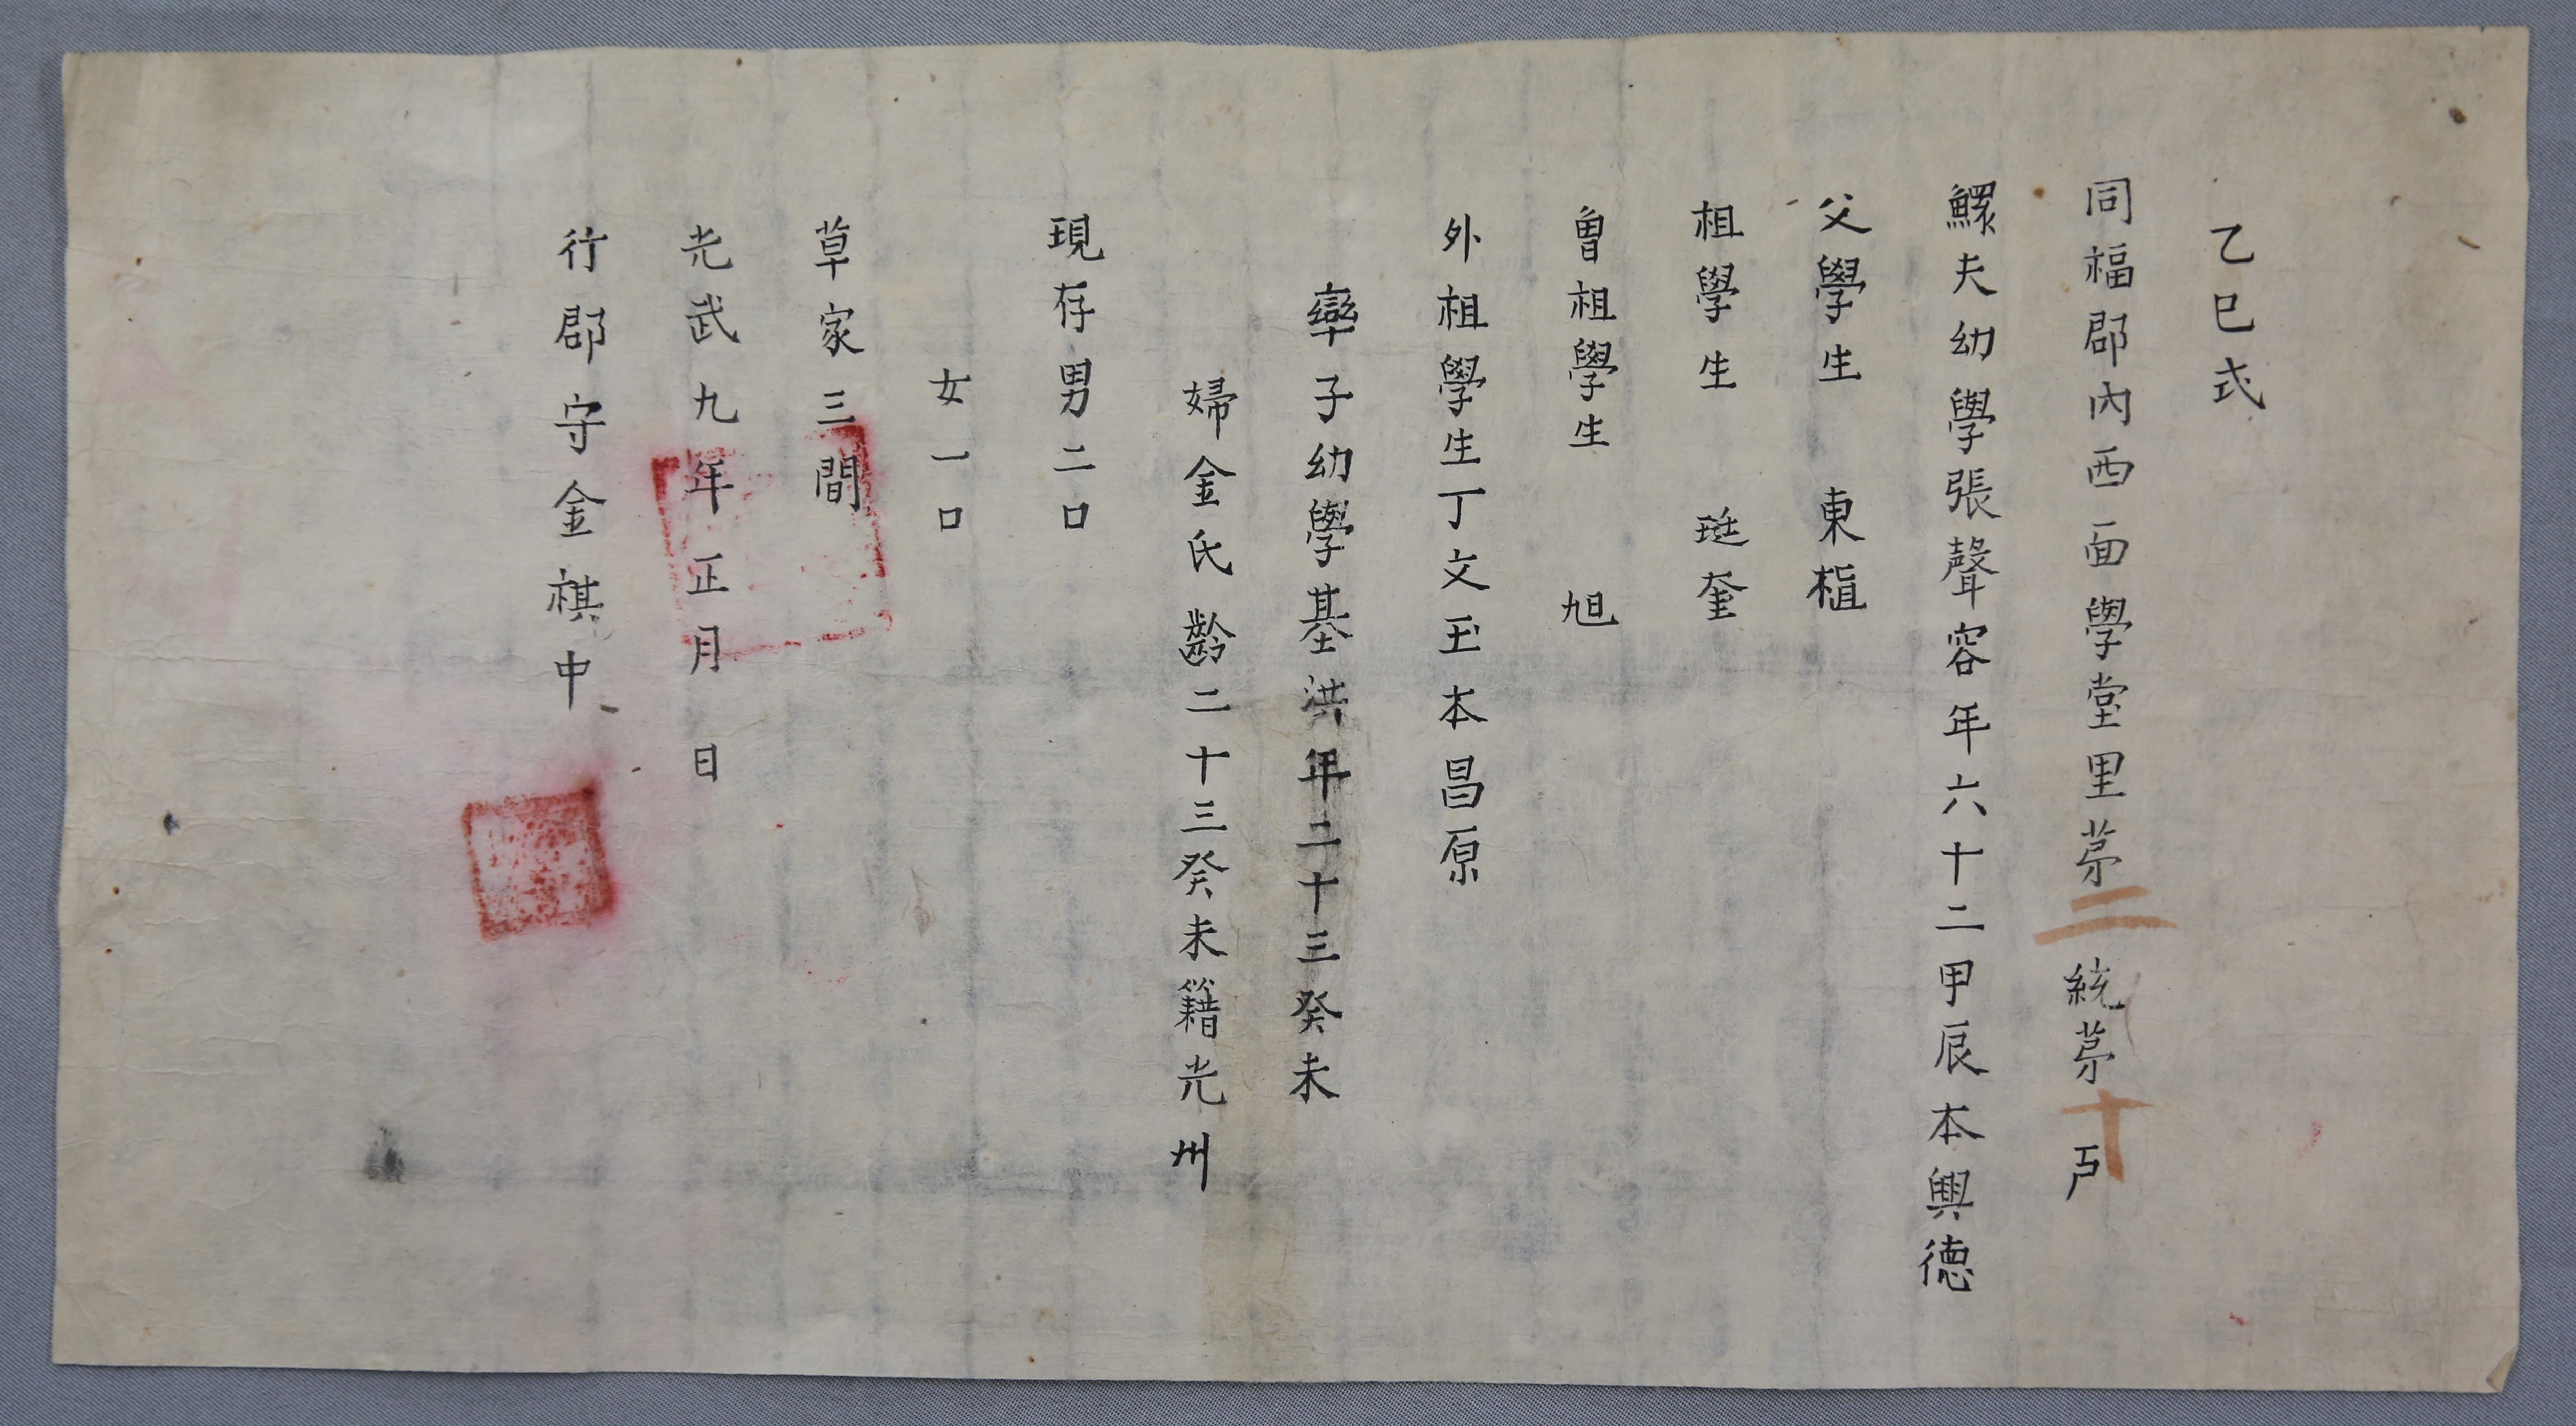 乙巳式
同福郡內西面學堂里苐二統苐十戶
鰥夫幼學張聲容年六十二甲辰本興德
父學生 東樞
祖學生 珽奎
曾祖學生 旭
外祖學生丁文玉本昌原
率子幼學基洪年二十三癸未
婦金氏齡二十三癸未籍光州
現存男二口
女一口
草家三間
光武九年正月 日
行郡守金祺中